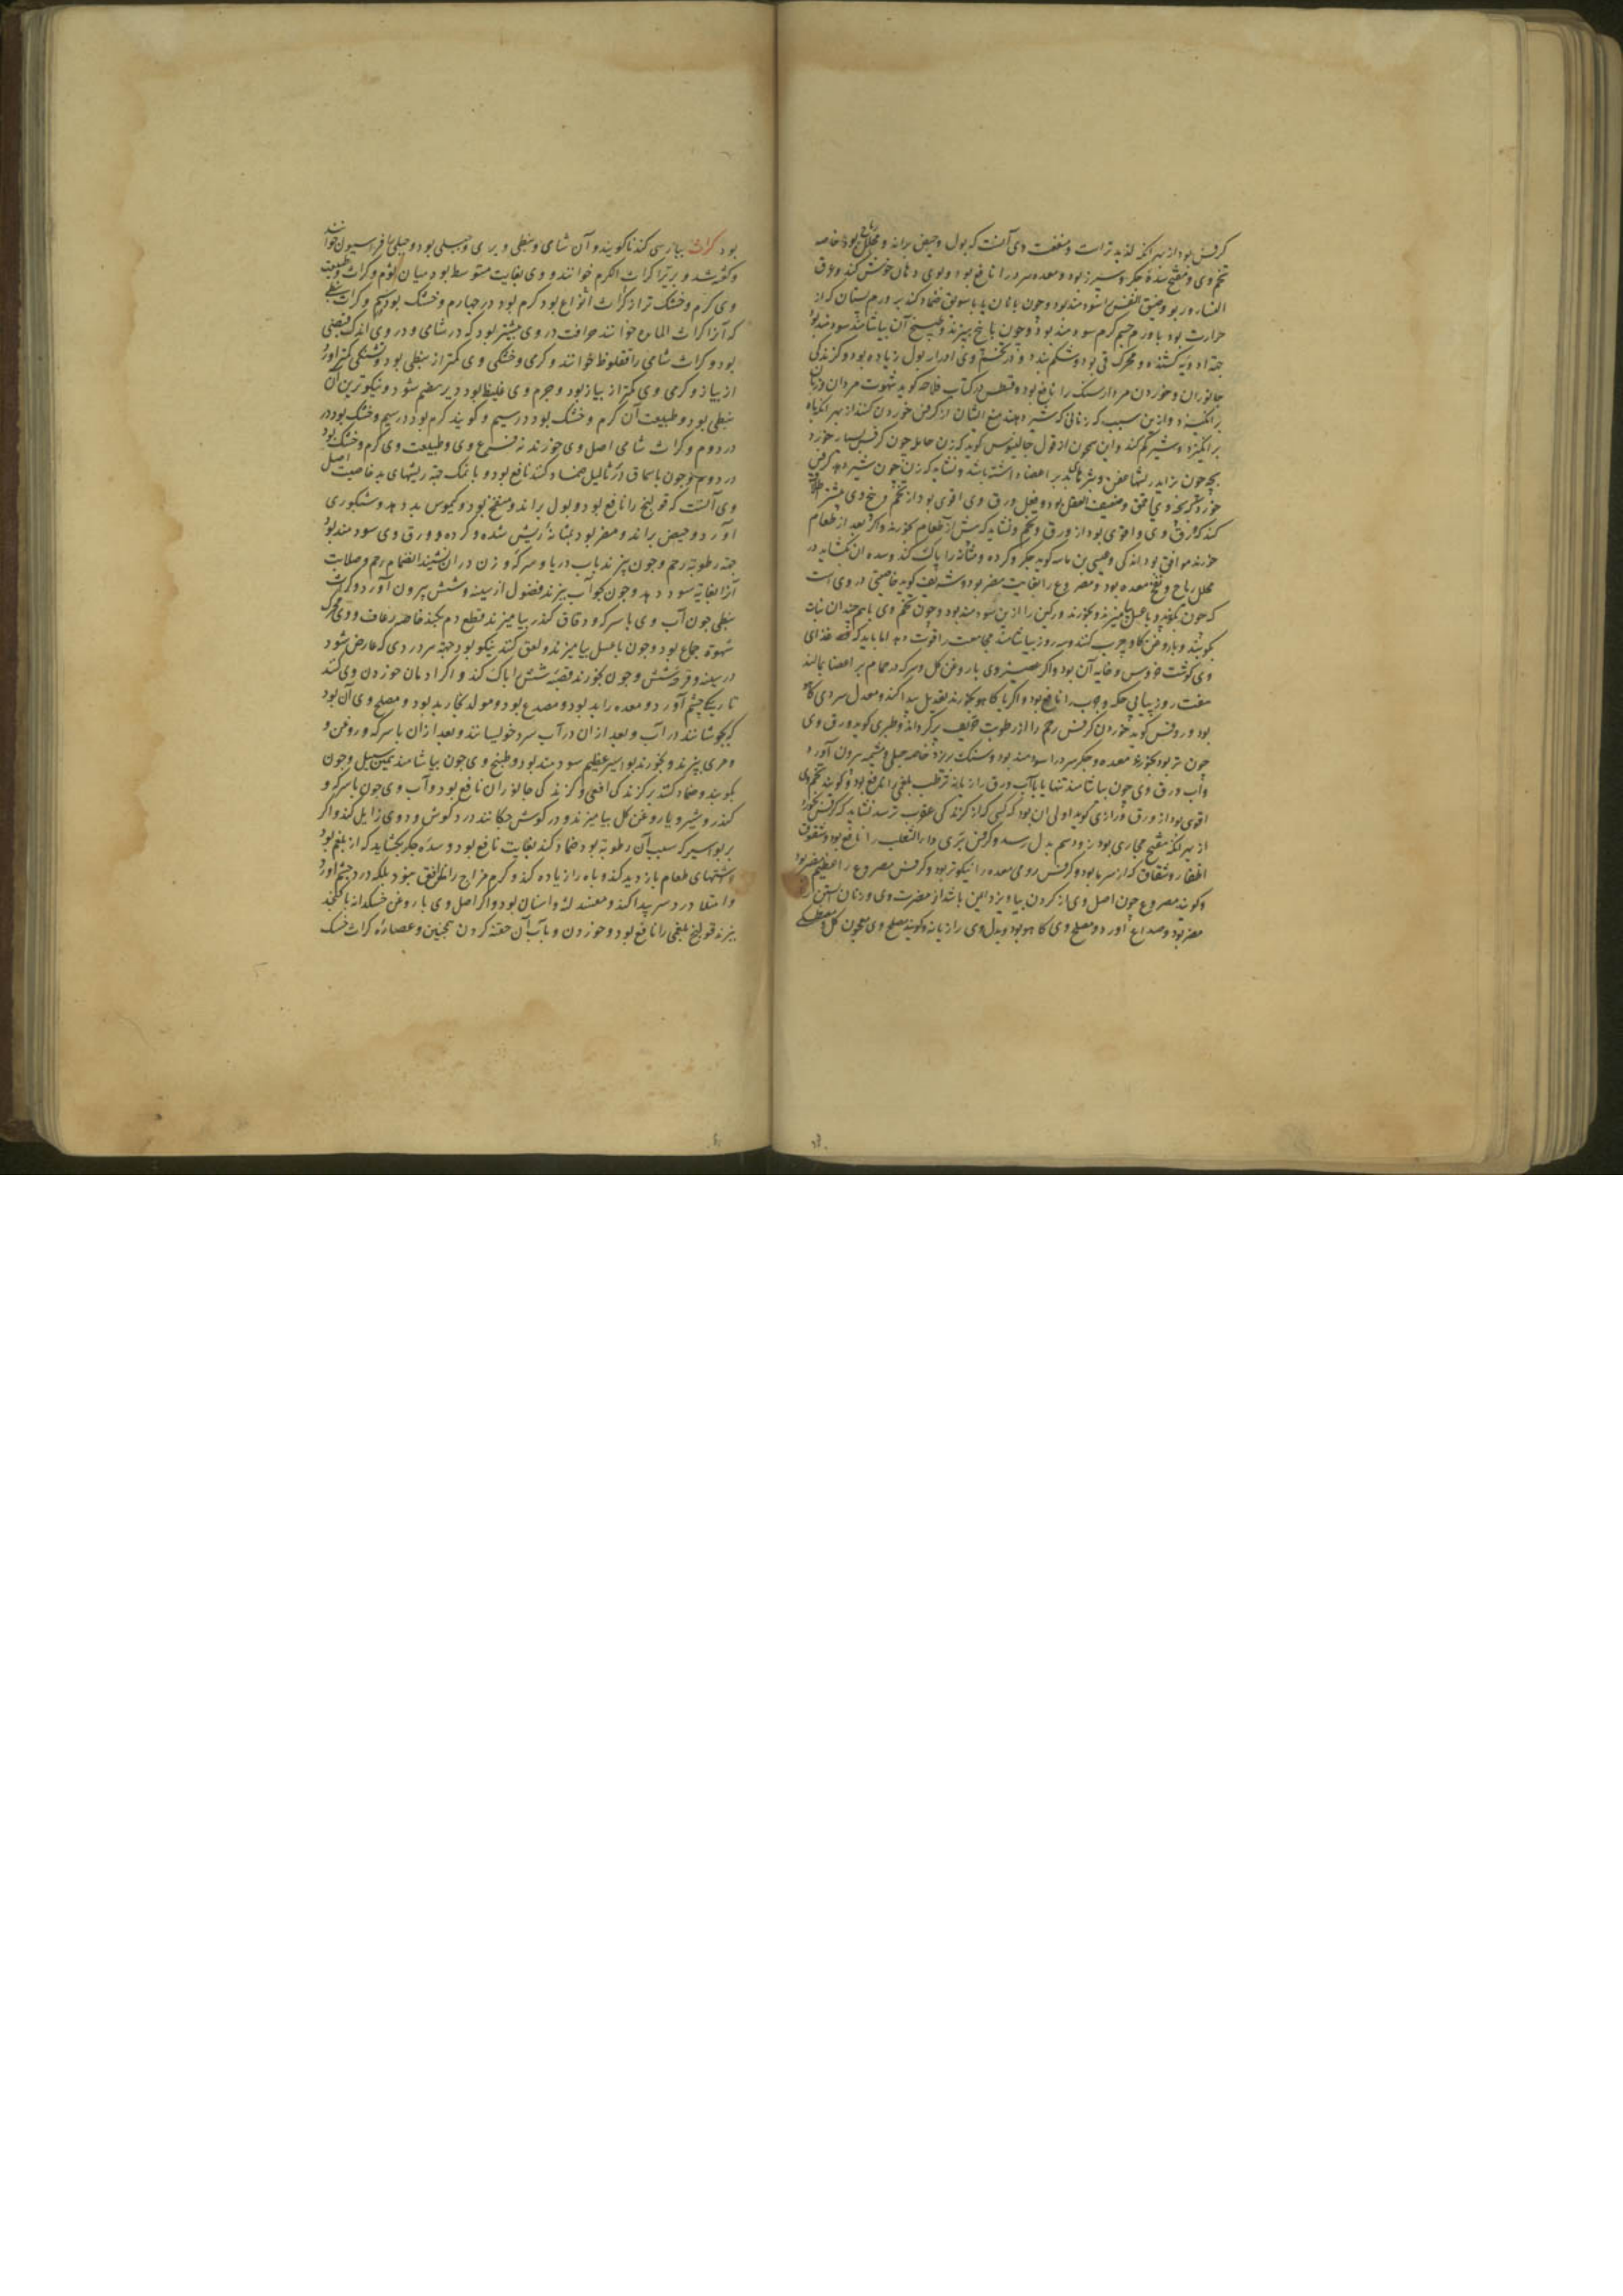 کرفس بود از بهر آنکه لذیذتر است و منفعت وی آنست که بول و حیض براند و محلل ریاح بود خاصه
تخم وی و مفتح سده جگر و سپرز بود و معده سرد را نافع بود و بوی دهان خوش کند و عرق
النسا و ربو و ضیق النفس را سودمند بود و چون با نان یا با سویق ضماد کنند بر ورم پستان که از
حرارت بود یا ورم چشم گرم سودمند بود و چون با بیخ بپزند و طبیخ آن بیاشامند سودمند بود
جهت ادویه کشنده و محرک قی بود و شکم ببندد و در تخم وی ادرار بول زیاده بود و گزندگی
جانوران و خوردن مردارسنگ را نافع بود و در کتاب فلاحه گوید شهوت مردان و زنان
برانگیزد و ازین سبب که زنانی که شیر دهند منع ایشان از کرفس خوردن کنند از بهر آنکه باه
برانگیزد و شیر کم کند و این از قول جالینوس گوید که زن حامله چون کرفس بسیار خورد
بچه چون بزاید ریشهای عفن و بثرهای بد بر اعضاء داشته باشد و نشاید که زن چون شیر دهد کرفس
خورد که بچه وی احمق و ضعیف العقل بود و فعل ورق وی اقوی بود از تخم و بیخ وی بیشتر
کند که ورق وی و اقوی بود از ورق و تخم و نشاید که پیش از طعام خورند و اگر بعد از طعام
خورند موافق بود اندکی و عیسی بن ماسه گوید جگر و گرده و مثانه را پاک کند و سده آن بگشاید و
محلل ریاح و نفخ معده بود و مصروع را بغایت مضر بود و شریف گوید خاصیتی در وی است
که چون بکوبند و با عسل بیامیزند و بخورند ورکین را ازین سودمند بود و چون تخم وی با همچندان نبات
بکوبند و با روغن گاو چرب کنند و سه روز بیاشامند مجامعت را قوت دهد اما باید که غذای
وی گوشت خروس و خایه آن بود و اگر عصیر وی با روغن گل و سرکه در حمام بر اعضا بمالند
هفت روز پیاپی حکه و جرب را نافع بود و اگر با کاهو بخورند تعدیل پیدا کند و معدل سردی کاهو
بود و روفس گوید خوردن کرفس رحم را از رطوبت حریف پر گرداند و طبری گوید ورق وی
چون تر بود بخورند معده و جگر سرد را سودمند بود و سنگ بریزد خاصه جبلی و مشیمه بیرون آورد
و آب ورق وی چون بیاشامند تنها یا با آب ورق رازیانه تر تب بلغمی را نافع بود و گویند تخم وی
اقوی بود از ورق و رازی گوید اولی آن بود که کسی که از گزندگی عقرب ترسد نشاید که کرفس بخورد
از بهر آنکه مفتح مجاری بود زود سم بدل رسد و کرفس بری داء الثعلب را نافع بود و شقوق
اظفار و شقاق که از سرما بود و کرفس رومی معده را نیکوتر بود و کرفس مصروع را عظیم مضر بود
و گویند مصروع چون اصل وی از گردن بیاویزد ایمن باشد از مضرت وی و زنان آبستن را
مضر بود و صداع آورد و مصلح وی کاهو بود و بدل وی رازیانه و گویند مصلح وی معجون گل و مصطکی
بود کراث بپارسی گندنا گویند و آن شامی و نبطی و بری و جبلی بود و جبلی را فراسیون خوانند
و گفته شد و بری را کراث الکرم خوانند و وی بغایت متوسط بود میان ثوم و کراث و طبیعت
وی گرم و خشک تر از کراث انواع بود گرم بود در چهارم و خشک بود در سیم و کراث نبطی
که آنرا کراث المائده خوانند حرافت در وی بیشتر بود که در شامی و در وی اندک قبضی
بود و کراث شامی را قفلوط خوانند و گرمی و خشکی وی کمتر از نبطی بود و تشنگی کمتر آورد
از پیاز و گرمی وی کمتر از پیاز بود و جرم وی غلیظ بود و دیر هضم شود و نیکوترین آن
نبطی بود و طبیعت آن گرم و خشک بود در سیم و گویند گرم بود در سیم و خشک بود در
در دوم و کراث شامی اصل وی خورند نه فرع وی و طبیعت وی گرم و خشک بود
در دوم و چون با سماق بر ثآلیل ضماد کنند نافع بود و با نمک جهت ریشهای بد خاصیت اصل
وی آنست که قولنج را نافع بود و بول براند و منفخ بود و کیموس بد دهد و شبکوری
آورد و حیض براند و مضر بود بمثانه ریش شده و گرده و ورق وی سودمند بود
جهت رطوبت رحم و چون بپزند باب دریا و سرکه و زن در آن نشیند انضمام رحم و صلابت
آنرا بغایت سود دهد و چون بجو آب بپزند فضول از سینه و شش بیرون آورد و کراث
نبطی چون آب وی با سرکه و دقاق کندر بیامیزند قطع دم بکند خاصه رعاف و وی محرک
شهوت جماع بود و چون با عسل بیامیزند و لعق کنند نیکو بود جهت هر دردی که عارض شود
در سینه و قرحه شش و چون بخورند قصبه شش را پاک کند و اگر ادمان خوردن وی کنند
تاریکی چشم آورد و معده را بد بود و مصدع بود و مولد بخار بد بود و مصلح وی آن بود
که بجوشانند در آب و بعد از آن در آب سرد خویسانند و بعد از آن با سرکه و روغن و
و مری بپزند و بخورند بواسیر عظیم سودمند بود و طبیخ وی چون بیاشامند همین سبیل و چون
بکوبند و ضماد کنند بر گزندگی افعی و گزندگی جانوران نافع بود و آب وی چون با سرکه و
کندر و شیر و یا روغن گل بیامیزند و در گوش چکانند درد گوش و دوی زایل کند و اگر
بر بواسیر که سبب آن رطوبت بود ضماد کنند بغایت نافع بود و سده جگر بگشاید که از بلغم بود
و اشتهای طعام بازدید کند و باه را زیاده کند و گرم مزاج را موافق نبود بلکه درد چشم آورد
و امتلا و درد سر پیدا کند و مفسد لثه و اسنان بود و اگر اصل وی با روغن خسکدانه یا کنجد
بپزند قولنج بلغمی را نافع بود و خوردن و بآب آن حقنه کردن همچنین و عصاره کراث خشک